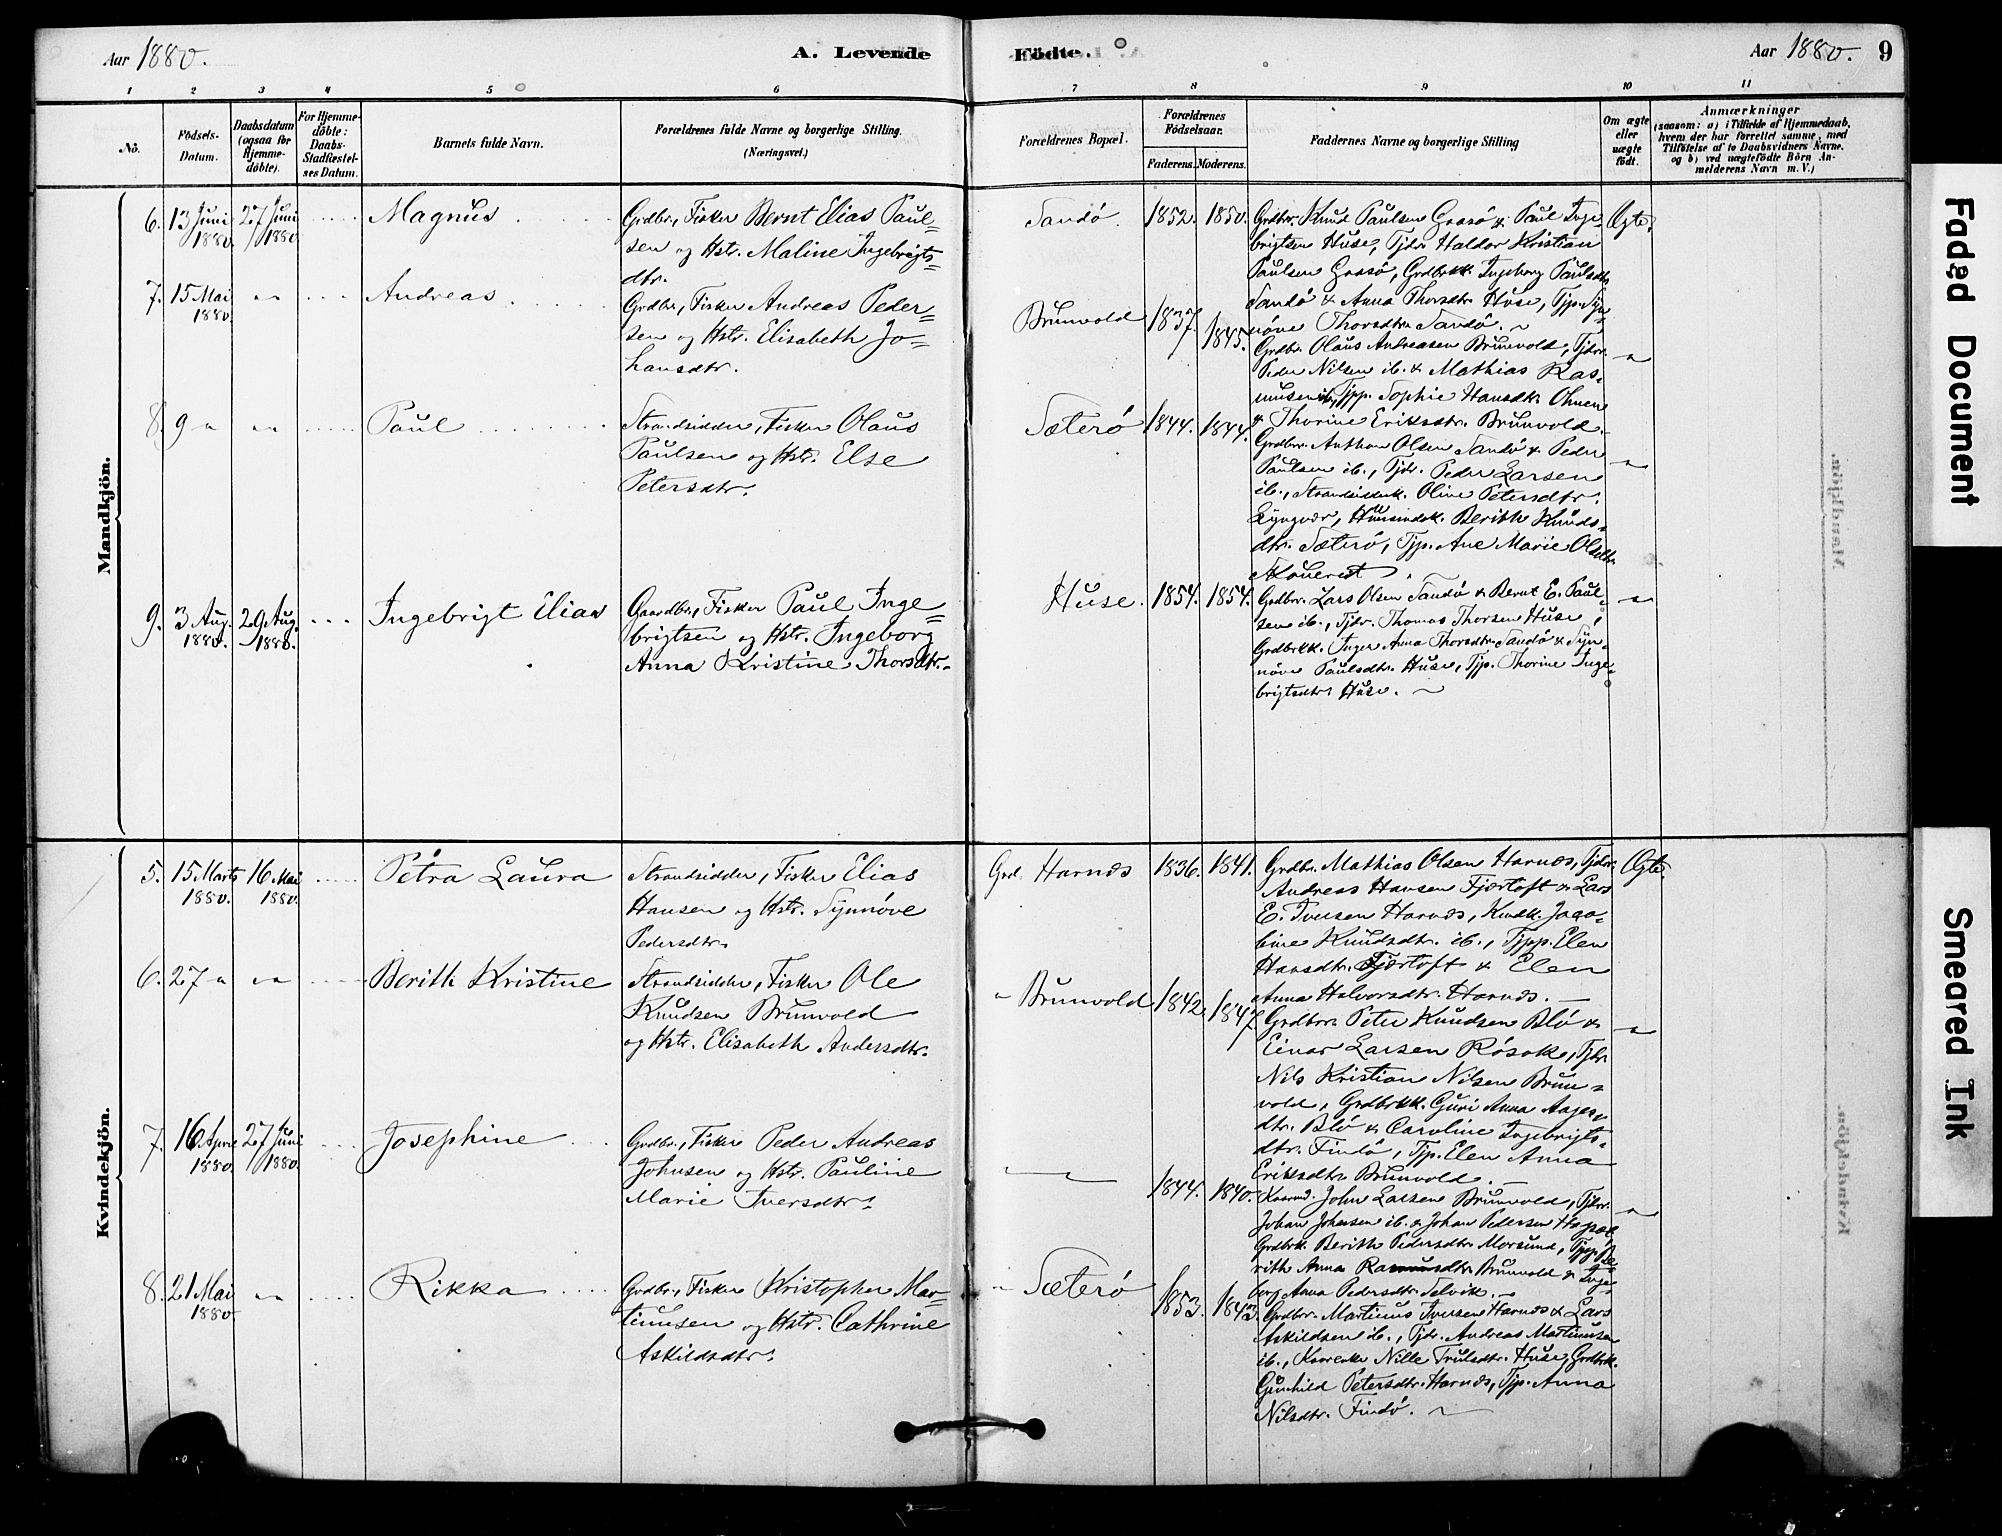 Aar 1880.
A. Levende
Födte.
Aar 1880. 9
1 2 3 4 5 6 7 8 9 10 11
No.
Födsels-
Datum.
Daabsdatum
(ogsaa for
Hjemme-
döbte).
For Hjemme-
döbte:
Daabs-
Stadfæstel-
ses Datum.
Barnets fulde Navn.
Forældrenes fulde Navne og borgerlige Stilling.
(Næringsvei.)
Forældrenes Bopæl.
Forældrenes
Födselsaar.
Faderens. Moderens.
Faddernes Navne og borgerlige Stilling
Om ægte
eller
uægte
födt.
Anmærkninger
(saasom: a) i Tilfælde af Hjemmedaab,
hvem der har forrettet samme, med
Tilföielse af to Daabsvidners Navne,
og b) ved uægtefödte Börn An-
melderens Navn m. V.)
Mandkjön.
6. 13 Juni 1880. 27 Juni 1880
Magnus
Grdbr., Fisker Bernt Elias Paul=
sen og Hstr. Maline Ingebrigts=
dtr.
Sandö. 1852. 1850.
Grdbr. Knud Paulsen Grasö & Paul Inge=
brigtsen Huse, Tjdr. Haldor Kristian
Paulsen Grasö, Grdbrkk. Ingeborg Paulsdtr.
Sandö & Anna Thorsdtr. Huse, Tjp. Syn=
növe Thorsdtr. Sandö. ~
Ægte.
7. 15 Mai 1880. "
Andreas
Grdbr., Fisker Andreas Peder=
sen og Hstr. Elisabeth Jo=
hansdtr.
Brunvold 1837. 1845.
Grdbr. Olaus Andreasen Brunvold, Tjdr.
Peder Nilsen ib. & Mathias Ras=
musen ib., Tjpp. Sophie Hansdtr.
& Thorine Eriksdtr. Brunvold.
"
8. 9 " "
Paul
Strandsidder, Fisker Olaus
Paulsen og Hstr. Else
Petersdtr.
Sæterö 1844. 1844.
Grdbr. Anthon Olsen Sandö & Peder
Paulsen ib., Tjdr. Peder Larsen
ib., Strandsiddk. Oline Petersdtr.
Lyngvær, Berith Knuds=
dtr. Sæterö, Tjp. Ane Marie Olsdtr.
"
9. 3 Aug. 1880. 29 Aug. 1880.
Ingebrigt Elias
Gaardbr., Fisker Paul Inge=
brigtsen og Hstr. Ingeborg
Anna Kristine Thorsdtr.
Huse. 1854. 1854.
Grdbr. Lars Olsen Sandö & Bernt E. Paul=
sen ib., Tjdr. Thomas Thorsen Huse,
Grdbrkk. Inger Anna Thorsdtr. Sandö & Syn=
növe Paulsdtr. Huse, Tjp. Thorine Inge=
brigtsdtr. Huse. ~
"
Kvindekjön.
5. 15 Marts 1880. 16 Mai 1880.
Petra Laura
Strandsidder, Fisker Elias
Hansen og Hstr. Synnöve
Pedersdtr.
Grd. Harnæs 1836. 1841.
Grdbr. Mathias Olsen Harnæs, Tjdr.
Andreas Hansen Fjærtoft & Lars
E. Iversen Harnæs, Jaco=
bine Knudsdtr. ib., Tjpp. Elen
Hansdtr. Fjærtoft & Elen
Anna Halvorsdtr. Harnæs. —
Ægte.
6. 27 " "
Berith Kristine
Strandsidder, Fisker Ole
Knudsen Brunvold
og Hstr. Elisabeth Andersdtr.
" Brunvold 1842. 1847.
Grdbr. Peter Knudsen Blö &
Einar Larsen Rösok, Tjdr.
Nils Kristian Nilsen Brun=
vold, Grdbrkk. Guri Anna Aages=
dtr. Blö & Caroline Ingebrigts=
dtr. Findö, Tjp. Elen Anna
Eriksdtr. Brunvold. —
"
7. 16 April 1880. 27 Juni 1880.
Josephine
Grdbr., Fisker Peder Andreas
Johnsen og Hstr. Pauline
Marie Iversdtr.
" 1844. 1840.
John Larsen Brunvold, Tjdr.
Johan Johansen ib. & Johan Pedersen
Grdbrk. Berith Pedersdtr. Morsund, Tjpp. Be=
rith Anna Rasmusdtr. Brunvold & Inge=
borg Anna Pedersdtr. Selvik. ~
"
8. 21 Mai 1880. "
Rikka
Grdbr., Fisker Kristopher Mar=
tinusen og Hstr. Cathrine
Askildsdtr.
" Sæterö 1853. 1843.
Grdbr. Martinus Iversen Harnæs & Lars
Askildsen ib., Tjdr. Andreas Martinusen
ib., Nille Trulsdtr. Huse, Grdbrk.
Gunhild Petersdtr. Harnæs, Tjp. Anna
Nilsdtr. Findö. ~
Faded Document
Smeared Ink